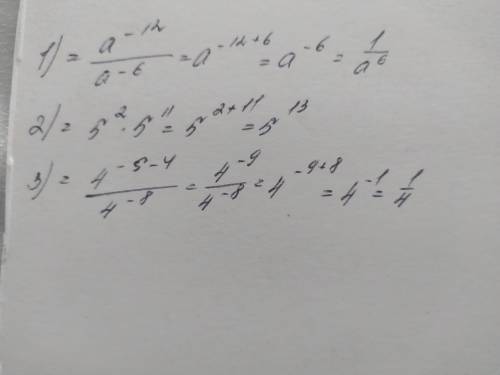 1) = a^{-12}/a^{-6} = a^{-12+6} = a^{-6} = 1/a^{6}
2) = 5^{2} · 5^{11} = 5^{2+11} = 5^{13}
3) = 4^{-5-4}/4^{-8} = 4^{-9}/4^{-8} = 4^{-9+8} = 4^{-1} = 1/4